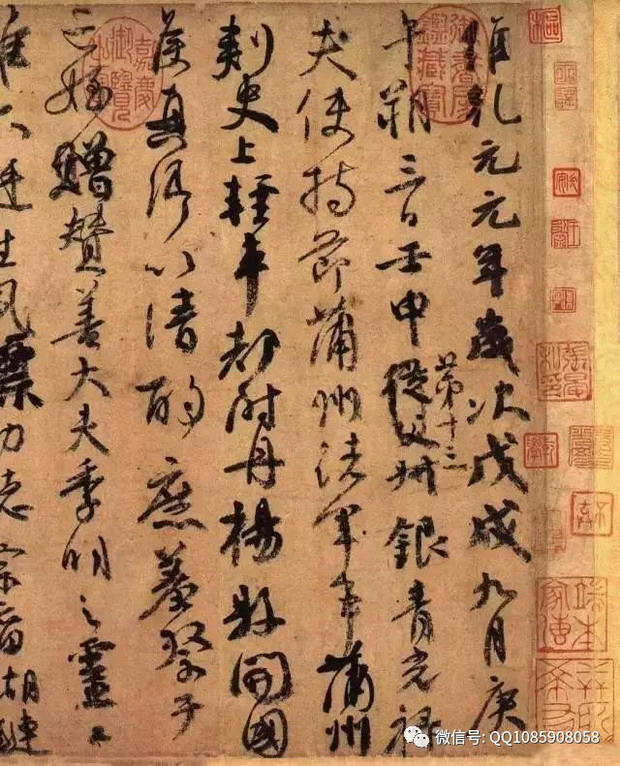 維乾元元年歲次戊戌九月庚
午朔三日壬申從父第十三叔銀青光禄
夫使持節蒲州諸軍事蒲州
刺史上輕車都尉丹楊縣開國
侯真卿以清酌庶羞祭于
亡姪贈贊善大夫季明之靈曰
惟爾挺生夙標幼德宗廟瑚璉
御書房鑒藏寶
嘉慶御覽之寶
微信号: QQ1085908058